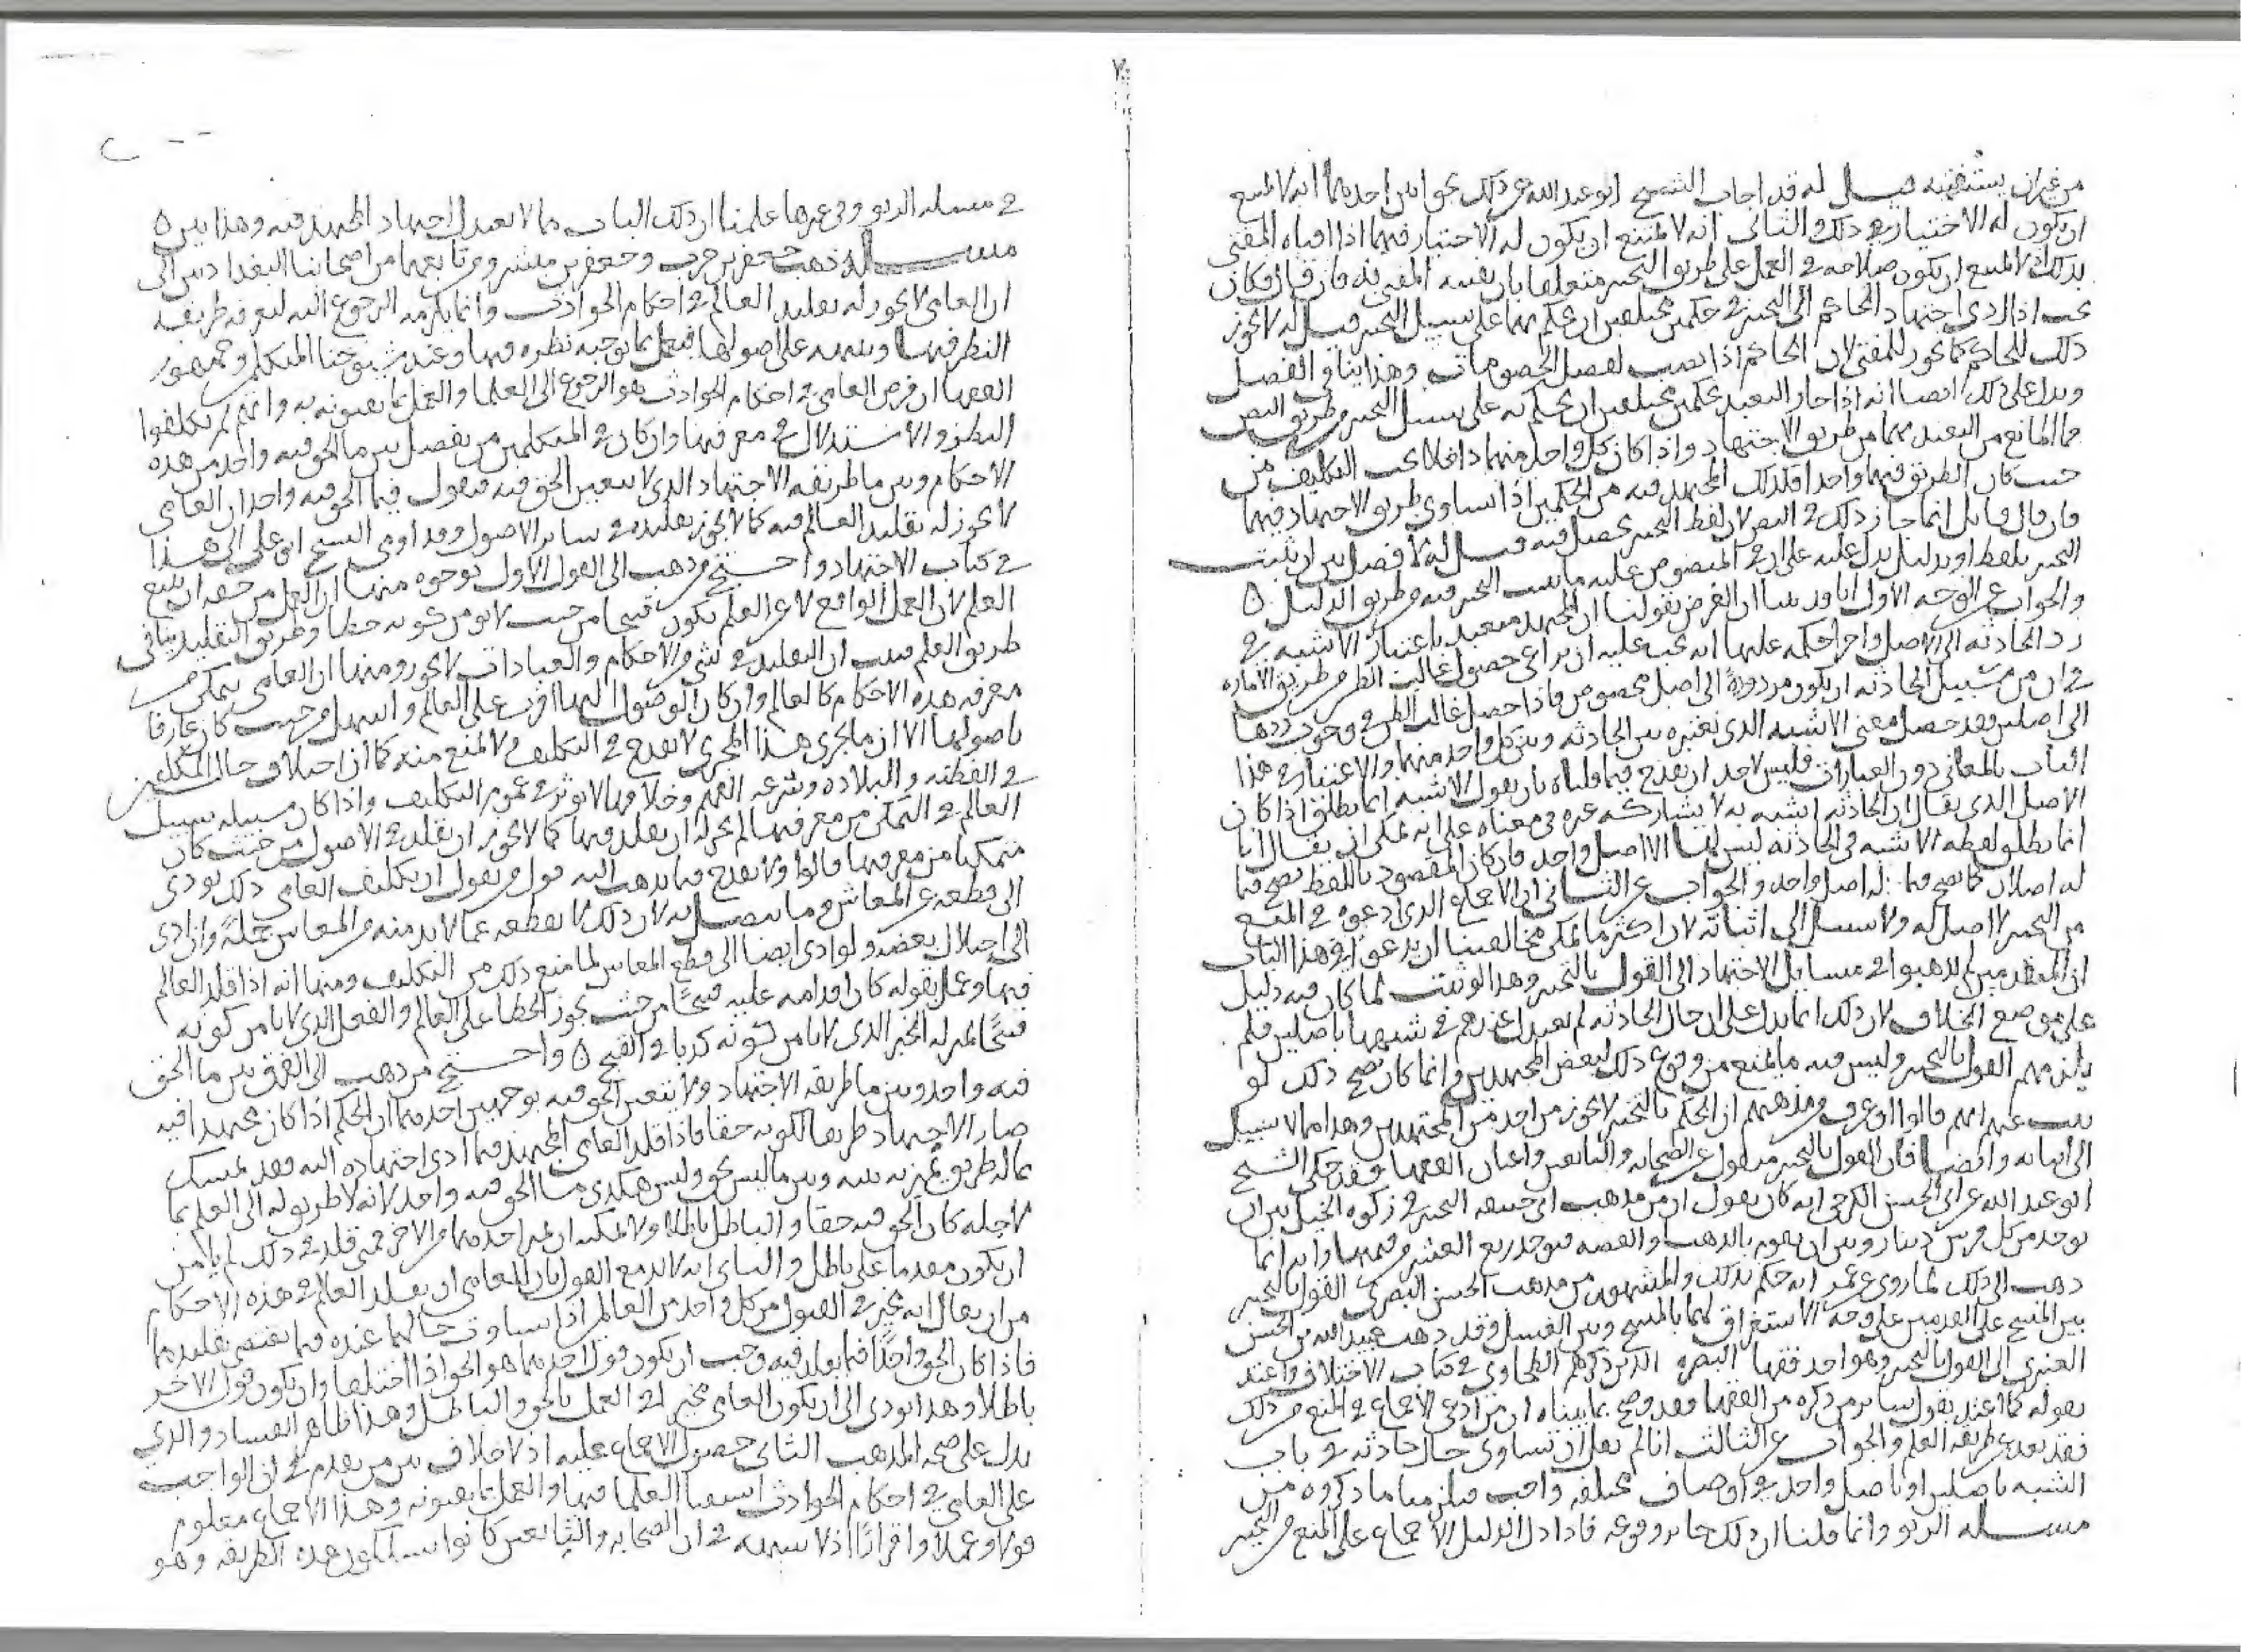 من غير ان يستفتيه قيل له قد اجاب الشيخ ابو عبد الله عن ذلك بجوابين احدهما انه لا يمتنع
ان يكون له الاختيار في ذلك والثاني انه لا يمتنع ان يكون له الاختيار فيهما اذا افتاه المفتي
بذلك لا يمتنع ان يكون صلاحه في العمل على طريق التخيير متعلقا بان يفتيه المفتي به فان قيل فكان
يجب اذا ادى اجتهاد الحاكم الى التخيير في حكمين مختلفين ان يحكم بهما على سبيل التخيير قيل له لا يجوز
ذلك للحاكم كما يجوز للمفتي لان الحاكم اذا نصب لفصل الخصومات وهذا ينافي الفصل
ويدل على ذلك ايضا انه اذا جاز التعبد بحكمين مختلفين ان يحكم به على سبيل التخيير من طريق النص
فما المانع من التعبد بهما من طريق الاجتهاد واذا كان كل واحد منهما داخلا تحت التكليف من
حيث كان الطريق فيهما واحدا فكذلك المجتهد فيه من الحكمين اذا تساوى طريق الاجتهاد فيهما
فان قال قائل انما جاز ذلك في النص لان لفظ التخيير يحصل فيه قيل له لا فصل بين ان يثبت
التخيير بلفظ او بدليل يدل عليه على ان في المنصوص عليه ما يثبت التخيير فيه من طريق الدليل ه
والجواب عن الوجه الاول انا قد بينا ان الغرض بقولنا ان المجتهد متعبد باعتبار الاشبه في
رد الحادثة الى الاصل واجراء حكمه عليها انه يجب عليه ان يراعي حصول غالب الظن من طريق الامارة
في ان من سبيل الحادثة ان يكون مردودة الى اصل مخصوص فاذا حصل غالب الظن في وجوب ردها
الى اصلين فقد حصل معنى الاشبه الذي نعتبره بين الحادثة وبين كل واحد منهما والاعتبار في هذا
الباب بالمعاني دون العبارات فليس لاحد ان يقدح فيما قلناه بان يقول الاشبه انما يطلق اذا كان
الاصل الذي يقال ان الحادثة اشبه به لا يشاركه غيره في معناه على انه يمكن ان يقال انا
انما نطلق لفظه الاشبه في الحادثة ليس لها الا اصل واحد فان كان المقصود باللفظ يصح فيما
له اصلان كما يصح فيما له اصل واحد والجواب عن الثاني ان الاجماع الذي ادعوه في المنع
من التخيير لا اصل له ولا سبيل الى اثباته لان اكثر ما يمكن مخالفينا ان يدعوا في هذا الباب
ان المتقدمين لم يذهبوا في مسايل الاجتهاد الى القول بالتخيير وهذا لو ثبت لما كان فيه دليل
على موضع الخلاف لان ذلك انما يدل على ان حال الحادثة لم تعتدل عندهم في شبهها باصلين فلم
يلزمهم القول بالتخيير وليس فيه ما يمنع من وقوع ذلك لبعض المجتهدين وانما كان يصح ذلك لو
ثبت عنهم انهم قالوا او عرف من مذهبهم ان الحكم بالتخيير لا يجوز من احد من المجتهدين وهذا مما لا سبيل
الى اثباته وايضا فان القول بالتخيير منقول عن الصحابه والتابعين واعيان الفقها وقد حكى الشيخ
ابو عبد الله عن ابي الحسن الكرخي انه كان يقول ان من مذهب ابي حنيفه التخيير في زكوه الخيل بين ان
يوخذ من كل فرس دينار وبين ان يقوم بالذهب والفضه فيوخذ ربع العشر من قيمتها وانه انما
ذهب الى ذلك لما روى عن عمر انه حكم بذلك والمشهور من مذهب الحسن البصري القول بالتخيير
بين المسح على القدمين على وجه الاستغراق لهما بالمسح وبين الغسل وقد ذهب عبيد الله بن الحسن
العنبري الى القول بالتخيير وهو احد فقها البصره الذين ذكرهم الطحاوي في كتاب الاختلاف واعتد
بقوله كما اعتد بقول ساير من ذكره من الفقها فقد وضح بما بيناه ان من ادعى الاجماع في المنع من ذلك
فقد بعد عن طريقه العلم والجواب عن الثالث انا لم نقل ان تساوى حال حادثه في باب
الشبه باصلين او باصل واحد في اوصاف مختلفه واجب فيلزمنا ما ذكروه من
مسله الربو وانما قلنا ان ذلك جايز وقوعه فاذا دل الدليل الاجماع على المنع من التخيير
في مسله الربو وفي غيرها علمنا ان ذلك الباب مما لا يعتدل اجتهاد المجتهد فيه وهذا بين ه
مسله ذهب جعفر بن حرب وجعفر بن مبشر ومن تابعهما من اصحابنا البغداديين الى
ان العامي لا يجوز له تقليد العالم في احكام الحوادث وانما يلزمه الرجوع اليه ليعرفه طريقه
النظر فيها وينبهه على اصولها فيعمل بما يوجبه نظره فيها وعند شيوخنا المتكلمين وجمهور
الفقها ان فرض العامي في احكام الحوادث هو الرجوع الى العلما والعمل بما يفتونه به وانهم لم يكلفوا
النظر والاستدلال في معرفتها وان كان في المتكلمين من يفصل بين ما الحق فيه واحد من هذه
الاحكام وبين ما طريقه الاجتهاد الذي لا يتعين الحق فيه فيقول فيما الحق فيه واحد ان العامي
لا يجوز له تقليد العالم فيه كما لا يجوز تقليده في ساير الاصول وقد اومى الشيخ ابو علي الى هذا
في كتاب الاجتهاد واحتج من ذهب الى القول الاول بوجوه منها ان العمل من حقه ان يتبع
العلم لان العمل الواقع لا عن العلم يكون قبيحا من حيث لا يومن كونه خطا وطريق التقليد ينافي
طريق العلم فيجب ان التقليد في شي من الاحكام والعبادات لا يجوز ومنها ان العامي يتمكن من
معرفه هذه الاحكام كالعالم وان كان الوصول اليها اقرب على العالم واسهل من حيث كان عارفا
باصولها الا ان ما يجري هذا المجرى لا يقدح في التكليف ولا يمنع منه كما ان اختلاف حال المكلفين
في الفطنه والبلاده وسرعه الفهم وخلافها لا يوثر في عموم التكليف واذا كان سبيله سبيل
العالم في التمكن من معرفتها لم يجز له ان يقلد فيها كما لا يجوز ان يقلد في الاصول من حيث كان
متمكنا من معرفتها قالوا ولا يقدح فيما نذهب اليه قول من يقول ان تكليف العامي ذلك يودي
الى قطعه عن المعاش وما يتصل به لان ذلك لا يقطعه عما لا بد منه من المعاش جملة وان ادى
الى اختلال بعضه ولو ادى ايضا الى قطع المعاش لما منع ذلك من التكليف ومنها انه اذا قلد العالم
فيها وعمل بقوله كان اقدامه عليه قبيحا من حيث يجوز الخطا على العالم والفعل الذي لا يامن كونه
قبيحا بمنزله الخبر الذي لا يامن كونه كذبا في القبح ه واحتج من ذهب الى الفرق بين ما الحق
فيه واحد وبين ما طريقه الاجتهاد ولا يتعين الحق فيه بوجهين احدهما ان الحكم اذا كان مجتهدا فيه
صار الاجتهاد طريقا لكونه حقا فاذا قلد العامي المجتهد فيما ادى اجتهاده اليه فقد تمسك
بما له طريق تميز به بينه وبين ما ليس بحق وليس هكذى ما الحق فيه واحد لانه لا طريق له الى العلم بما
لاجله كان الحق فيه حقا والباطل باطلا ولا يمكنه ان يميز احدهما من الاخر فمتى قلد في ذلك لم يامن
ان يكون مقدما على باطل والثاني انه لا بد مع القول بان للعامي ان يقلد العالم في هذه الاحكام
من ان يقال انه مخير في القبول من كل واحد من العالمين اذا تساوت حالهما عنده فيما يقتضي تقليدهما
فاذا كان الحق واحدا فيما يقلد فيه وجب ان يكون قول احدهما هو الحق اذا اختلفا وان يكون قول الاخر
باطلا وهذا يودي الى ان يكون العامي مخيرا في العمل بالحق والباطل وهذا ظاهر الفساد والذي
يدل على صحه المذهب الثاني حصول الاجماع عليه اذ لا خلاف بين من تقدم في ان الواجب
على العامي في احكام الحوادث استفتا العلما فيها والعمل بما يفتونه وهذا الاجماع معلوم
قولا وعملا واقرارا اذ لا شبهه في ان الصحابه والتابعين كانوا يسلكون هذه الطريقه وهو